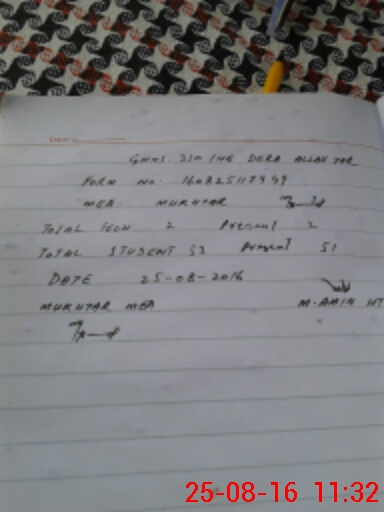 DERA ALLAH YAR
FORM NO. 160825117949
MEA MUKHTAR
TOTAL TECH 2 Present 2
TOTAL STUDENT 53 Present 51
DATE 25-08-2016
MUKHTAR MEA M. AMIN HT
25-08-16 11:32